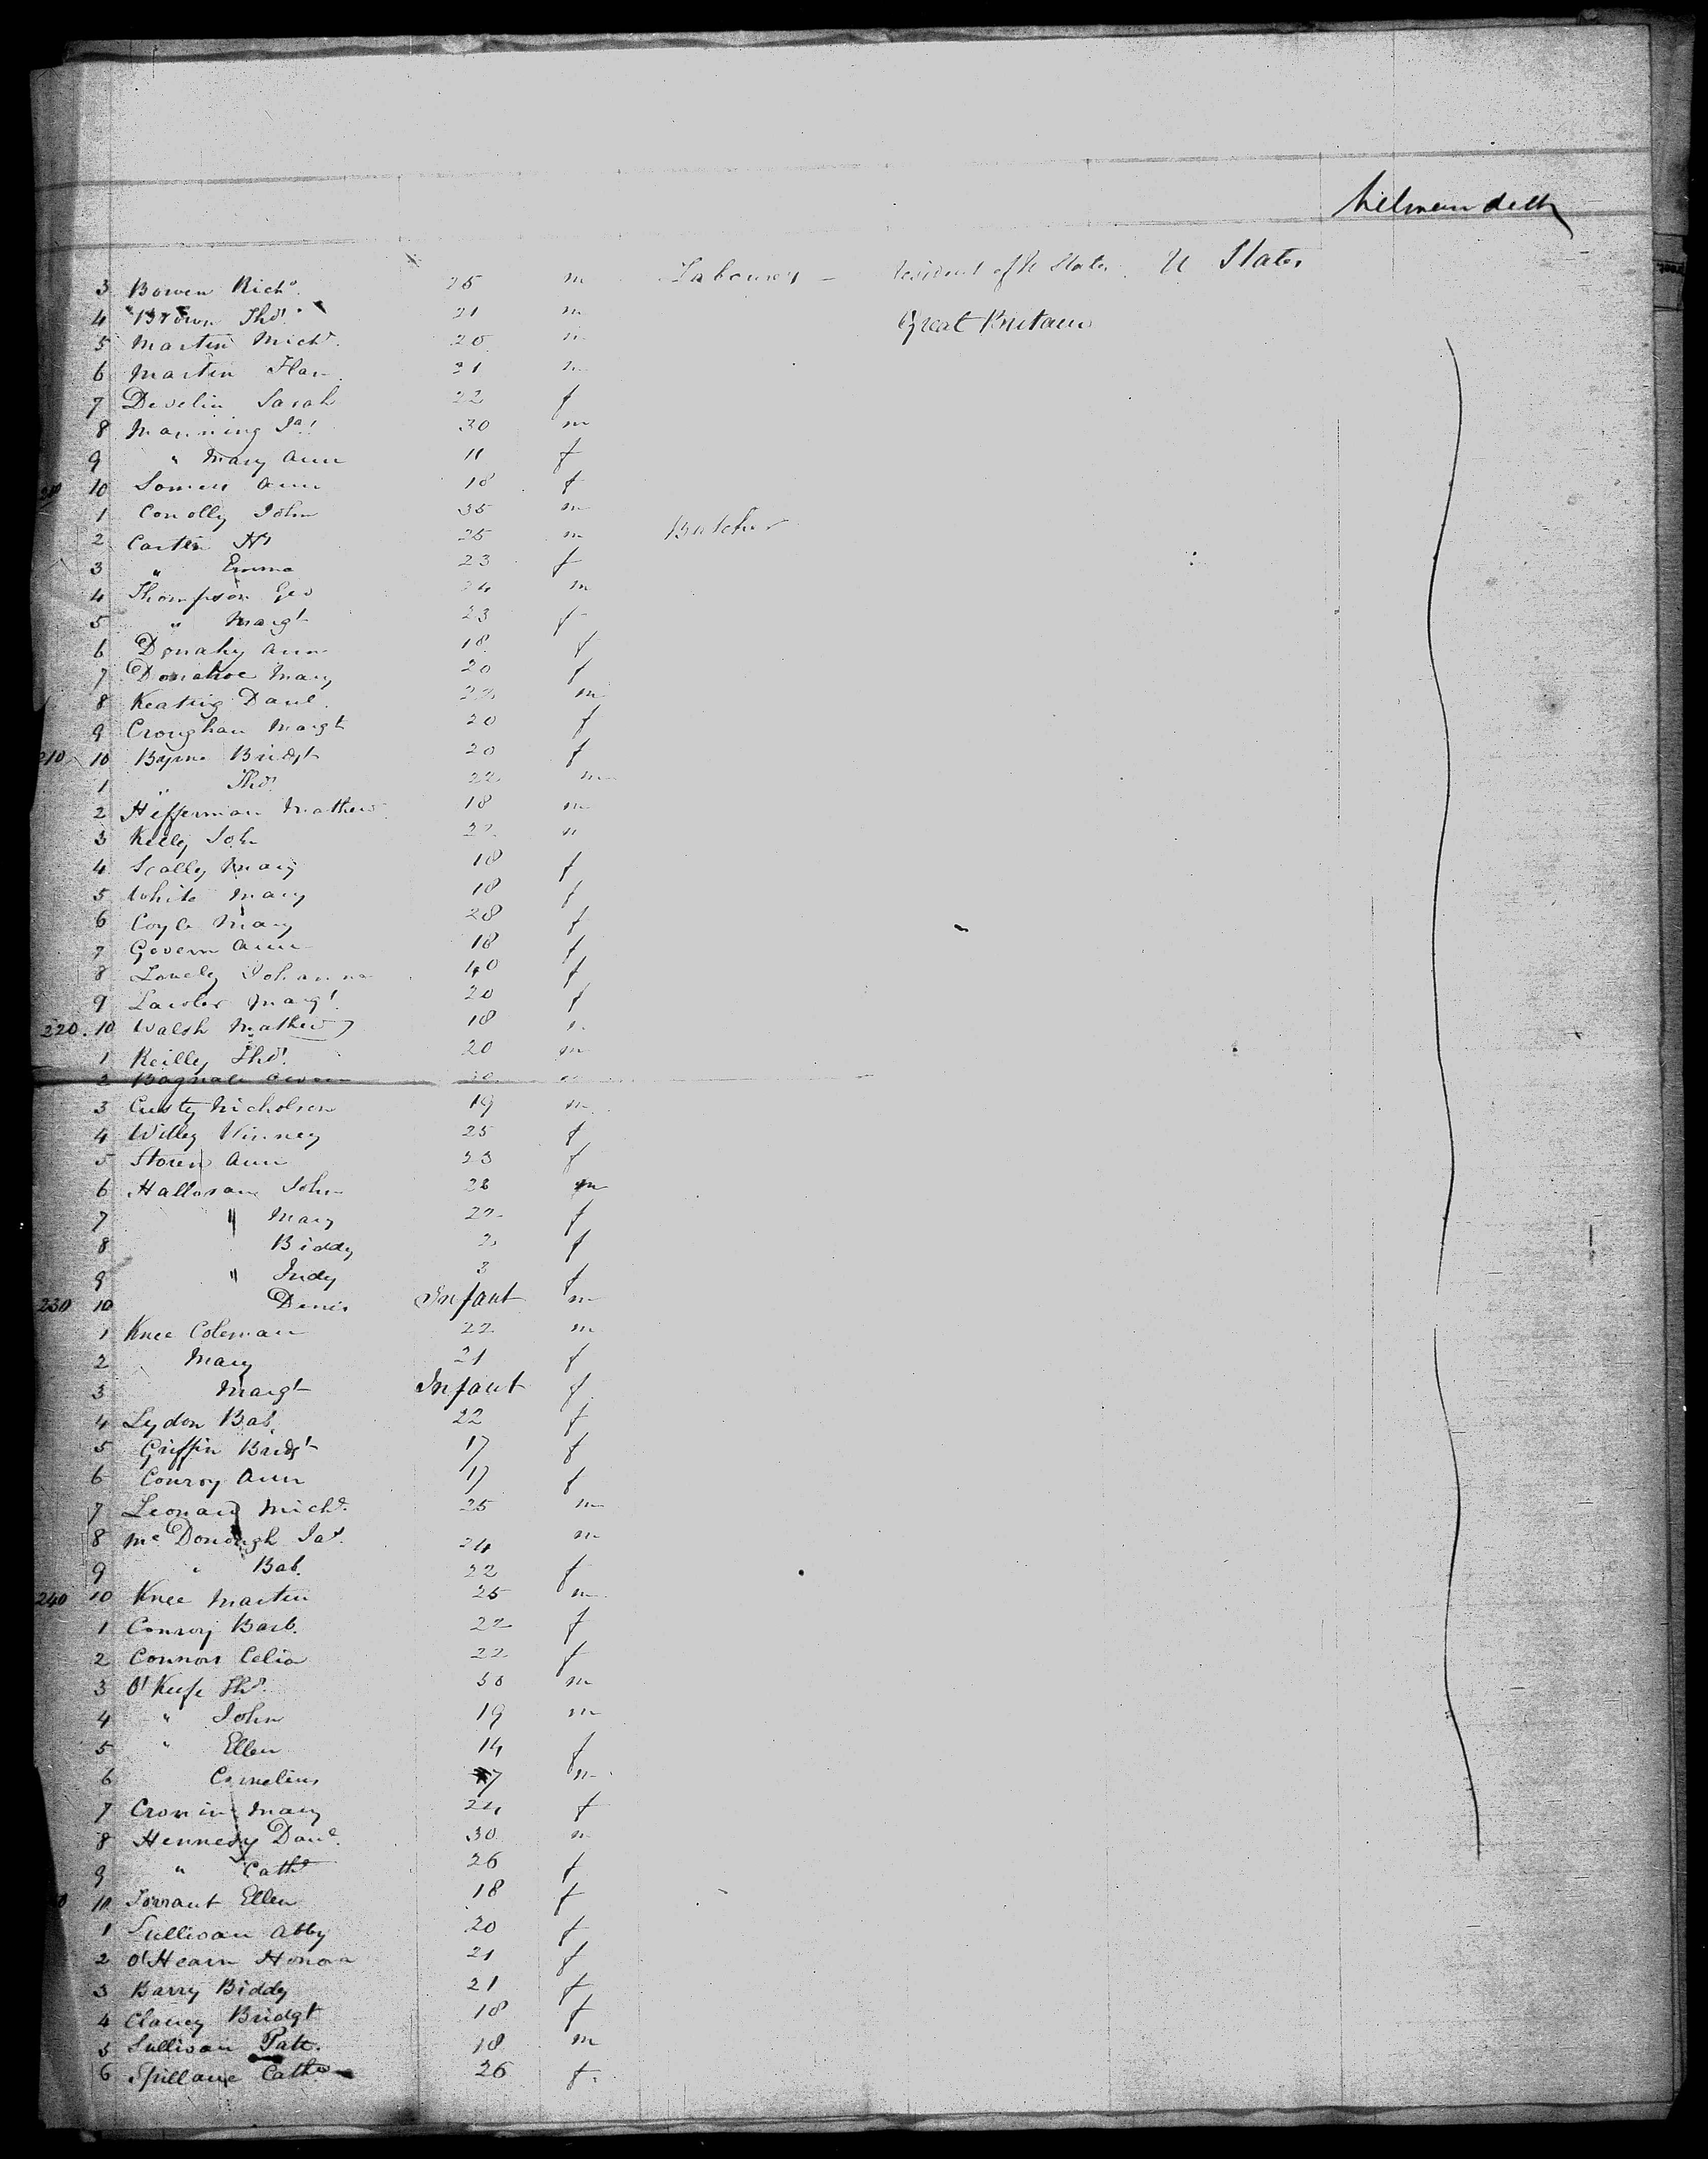 3 Bowen Richd. 25 m Labourer — Resident of U States U States
4 Brown Thos. 21 m Great Britain
5 Martin Michl. 20 m
6 Martin 21 m
7 Develin Sarah 22 f
8 Manning Jas. 30 m
9 " Mary Ann 11 f
10 Somers Ann 18 f
1 Conolly John 35 m
2 25 m Butcher
3 " Emma 23 f
4 Thompson Geo 24 m
5 " Margt 23 f
6 Donahy Ann 18 f
7 Donahoe Mary 20 f
8 Keatig Danl. 22 m
9 Croughan Margt 20 f
210 10 Byrne Bridgt 20 f
1 " Thos. 22 m
2 Heffernan Mathew 18 m
3 Kelly John 22 m
4 Scally Mary 18 f
5 White Mary 18 f
6 Coyle Mary 28 f
7 Govern Ann 18 f
8 Johanna 40 f
9 Lawler Margt. 20 f
220. 10 Walsh Mathew 18 m
1 Reilly Thos. 20 m
2 Bagnall m
3 Custy Nicholson 19 m
4 Willey Winney 25 f
5 Storen Ann 23 f
6 Halloran John 28 m
7 " Mary 22 f
8 Biddy f
9 " Judy 3 f
230 10 Denis Infant m
1 Knee Coleman 22 m
2 Mary 21 f
3 Margt Infant f
4 Lydon Bab. 22 f
5 Griffin Bridgt 17 f
6 Conroy Ann 17 f
7 Leonard Michl. 25 m
8 McDonough Jas. 24 m
9 " Bab. 22 f
240 10 Knee Martin 25 m
1 Conroy Barb. 22 f
2 Connors Celia 22 f
3 O'Keefe Thos. 50 m
4 " John 19 m
5 " Ellen 14 f
6 Cornelius 7 m
7 Cronin Mary 24 f
8 Hennedy Danl. 30 m
9 " Cath 26 f
10 Torrant Ellen 18 f
1 Sullivan Abby 20 f
2 O'Hearn Honora 21 f
3 Barry Biddy 21 f
4 Clancy Bridgt 18 f
5 Sullivan Patt. 18 m
6 Spillane Cath 26 f.